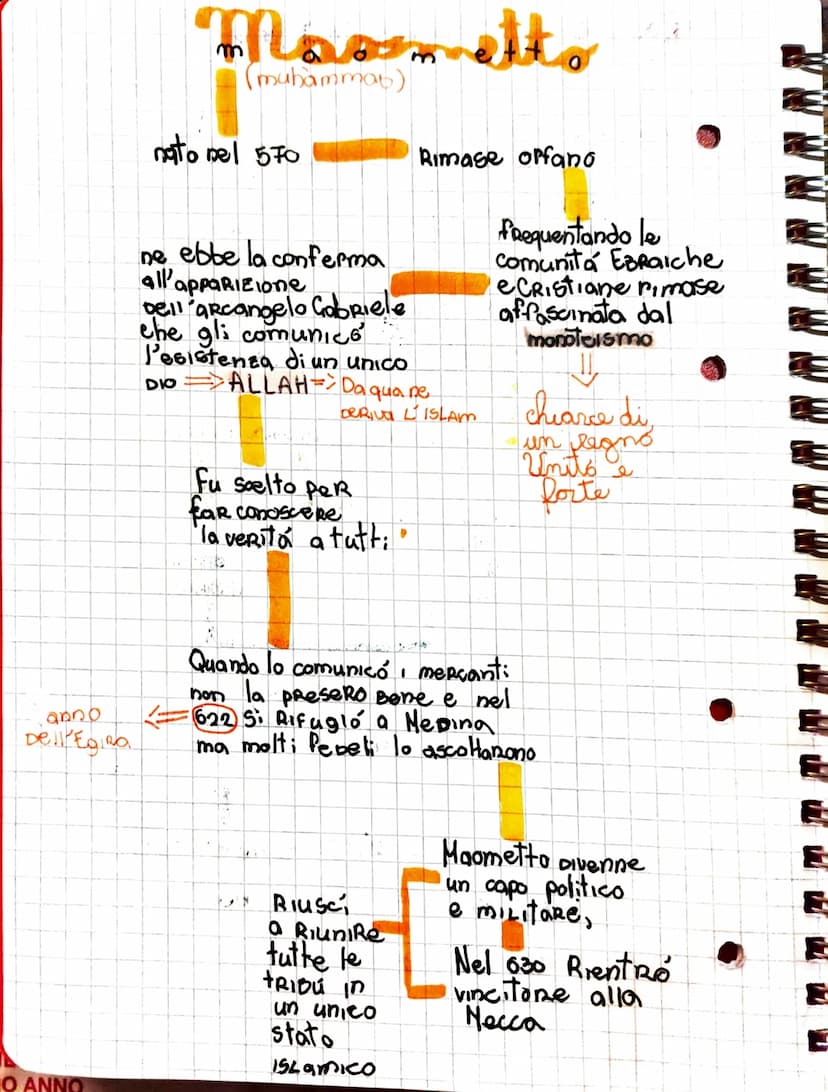 Maometto
(muhammad)
nato nel 570
Rimase orfano
frequentando le
comunitá Ebraiche
e Cristiane rimase
affascinata dal
monoteismo
chiarce di
un regno
Unito e
forte
ne ebbe la conferma
all'apparizione
dell'arcangelo Gabriele
che gli comunicó
l'esistenza di un unico
Dio => ALLAH => Da qua ne
deriva l'Islam
Fu scelto per
far conoscere
la veritá a tutti
Quando lo comunicó i mercanti
non la presero bene e nel
622 si rifugió a Medina
ma molti fedeli lo ascoltarono
anno
dell'Egira
Maometto divenne
un capo politico
e militare,
Nel 630 Rientró
vincitore alla
Mecca
Riuscí
a riunire
tutte le
tribú in
un unico
stato
islamico
O ANNO